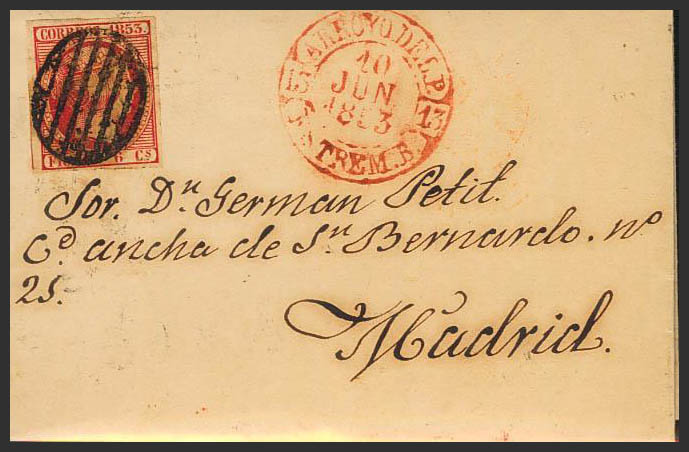 CORREOS 1853.
6 Cs
ARROYO.DEL.P.
10
JUN
1853
13
ESTREM.B
Sor. Dn German Petit.
Cd ancha de Sn Bernardo. no
25.
Madrid.